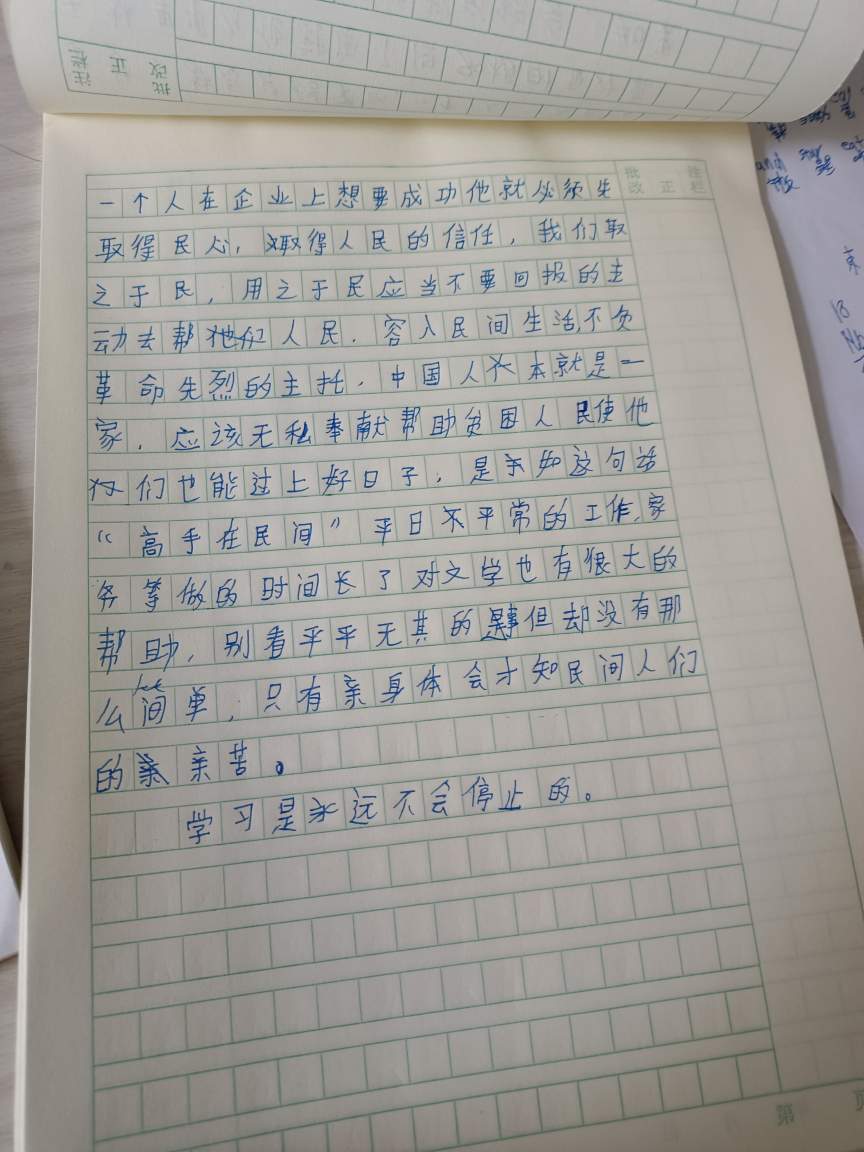 一个人在企业上想要成功他就必须先
取得民心，取得人民的信任，我们取
之于民，用之于民应当不要回报的主
动去帮他们人民．容入民间生活，不负
革命先烈的主托．中国人本就是一
家．应该无私奉献帮助贫困人民使他
们也能过上好日子．是未如这句话
“高手在民间”平日不平常的工作，家
务等做的时间长了对文学也有很大的
帮助，别看平平无其的事但却没有那
么间单，只有亲身体会才知民间人们
的亲苦。
学习是永远不会停止的。
批改正注栏
第 页